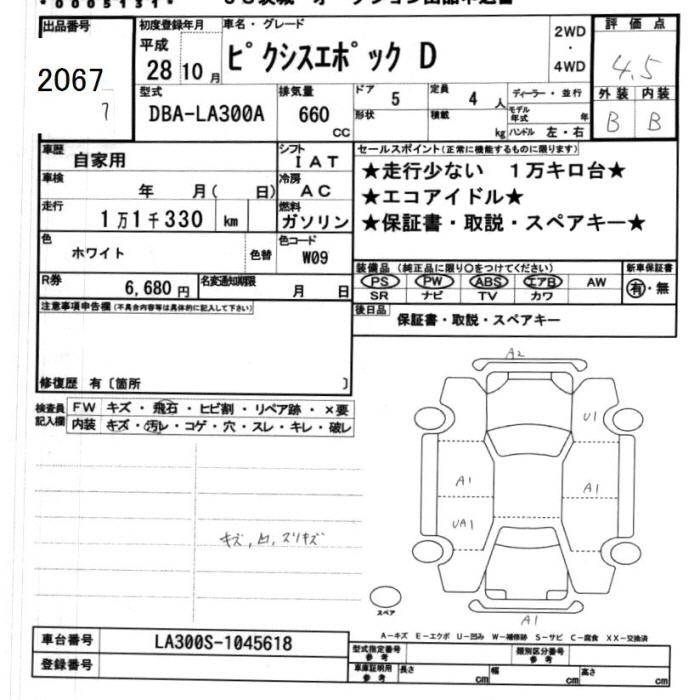 *0005131*
出品番号 初度登録年月 車名・グレード 2WD 評価点
平成 ・
2067 28 10月 ピクシスエポック D 4WD 4.5
7 型式 排気量 ドア 5 定員 4人 ディーラー・並行 外装 内装
DBA-LA300A 660 CC 形状 積載 kg モデル年式 年 B B
ハンドル 左・右
車歴 自家用 シフト IAT セールスポイント(正常に機能するものに限ります)
車検 年 月( 日) 冷房 AC ★走行少ない 1万キロ台★
走行 1万1千330 km 燃料 ガソリン ★エコアイドル★
★保証書・取説・スペアキー★
色 ホワイト 色替 色コード W09
装備品(純正品に限り○をつけてください) 新車保証書
R券 6,680円 名変通知期限 月 日 PS PW ABS エアB AW 有・無
SR ナビ TV カワ
注意事項申告欄(不具合内容等は具体的に記入して下さい) 後日品 保証書・取説・スペアキー
修復歴 有〔箇所 〕
検査員 FW キズ・飛石・ヒビ割・リペア跡・×要
記入欄 内装 キズ・汚レ・コゲ・穴・スレ・キレ・破レ
A2
U1
A1 A1
UA1
キズ,凹,スリキズ
スペア
A1
A−キズ E−エクボ U−凹み W−補修跡 S−サビ C−腐食 XX−交換済
車台番号 LA300S-1045618 型式指定番号 参考 類別区分番号 参考
登録番号 車庫証明用 参考 長さ cm 幅 cm 高さ cm